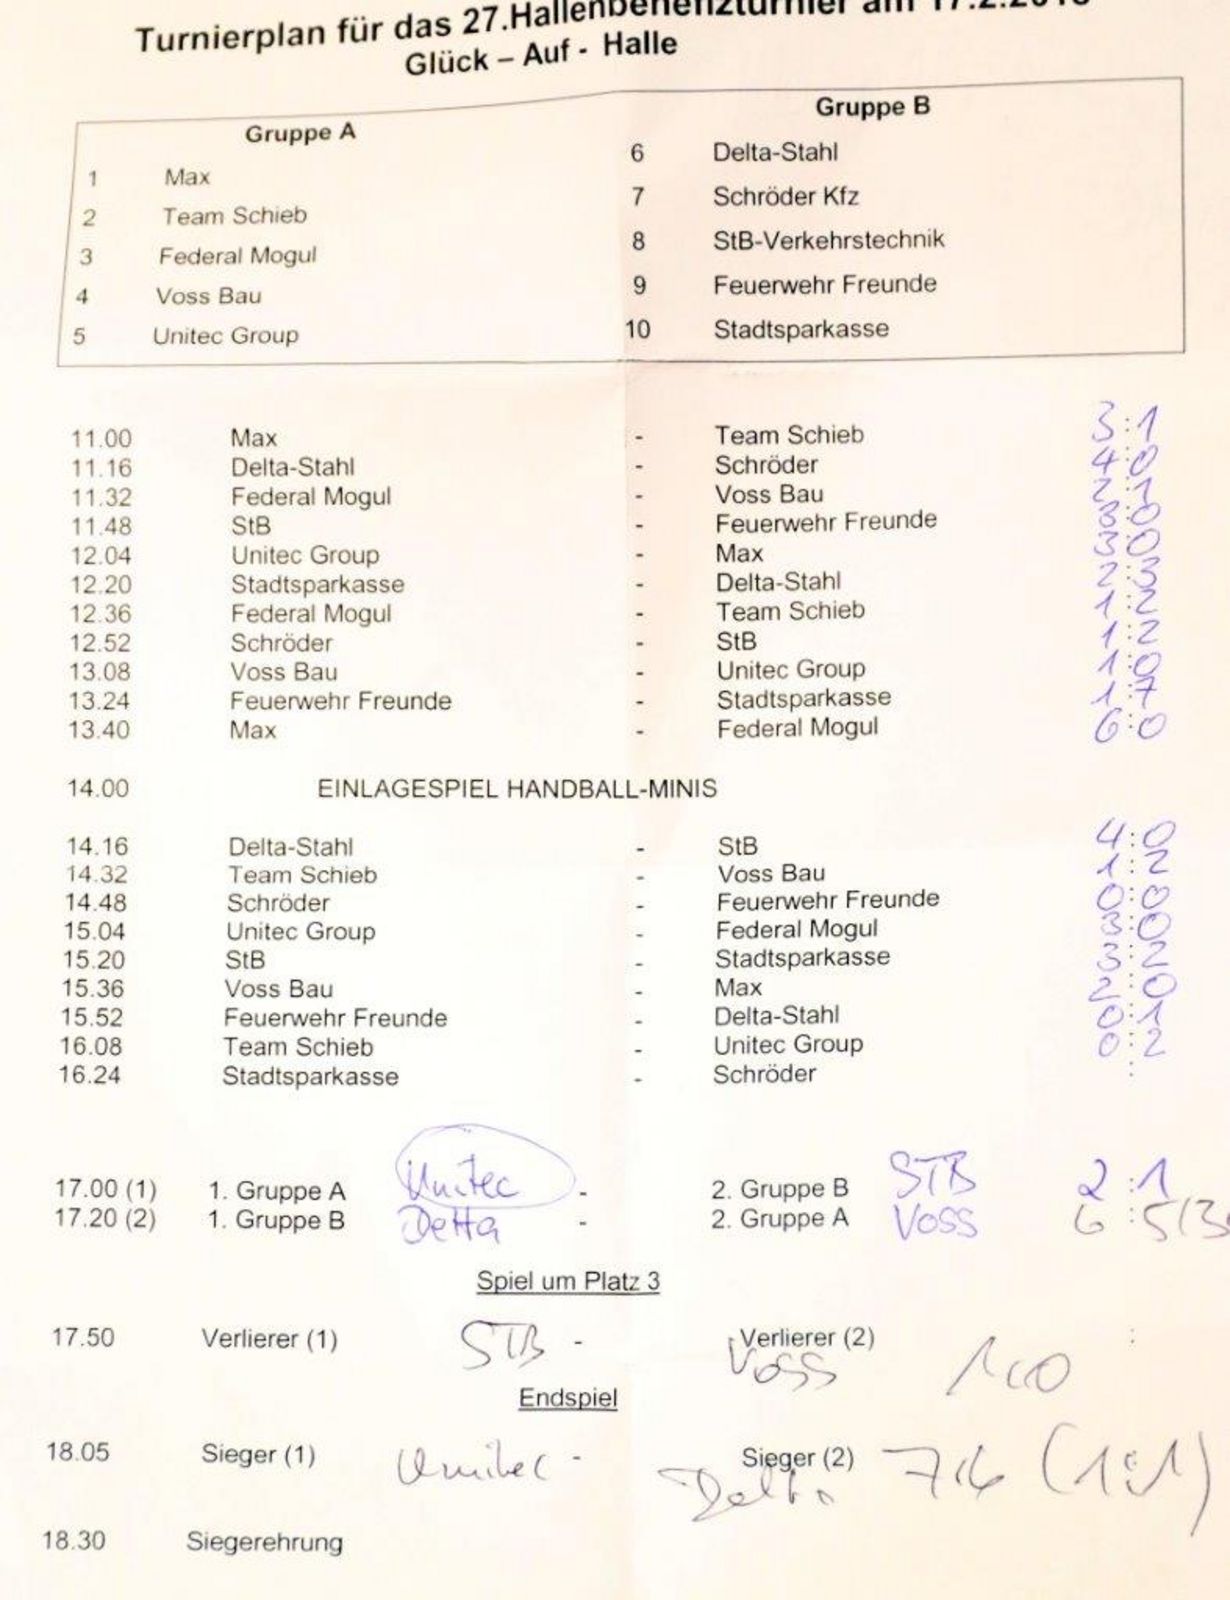 Turnierplan für das 27.Hallenbenefizturnier am 17.2.2018
Glück – Auf - Halle
Gruppe A Gruppe B
1 Max 6 Delta-Stahl
2 Team Schieb 7 Schröder Kfz
3 Federal Mogul 8 StB-Verkehrstechnik
4 Voss Bau 9 Feuerwehr Freunde
5 Unitec Group 10 Stadtsparkasse
11.00 Max - Team Schieb 3:1
11.16 Delta-Stahl - Schröder 4:0
11.32 Federal Mogul - Voss Bau
11.48 StB - Feuerwehr Freunde 3:0
12.04 Unitec Group - Max 3:0
12.20 Stadtsparkasse - Delta-Stahl 2:3
12.36 Federal Mogul - Team Schieb 1:2
12.52 Schröder - StB 1:2
13.08 Voss Bau - Unitec Group 1:0
13.24 Feuerwehr Freunde - Stadtsparkasse 1:7
13.40 Max - Federal Mogul 6:0
14.00 EINLAGESPIEL HANDBALL-MINIS
14.16 Delta-Stahl - StB 4:0
14.32 Team Schieb - Voss Bau 1:2
14.48 Schröder - Feuerwehr Freunde 0:0
15.04 Unitec Group - Federal Mogul 3:0
15.20 StB - Stadtsparkasse 3:2
15.36 Voss Bau - Max 2:0
15.52 Feuerwehr Freunde - Delta-Stahl 0:1
16.08 Team Schieb - Unitec Group 0:2
16.24 Stadtsparkasse - Schröder :
17.00 (1) 1. Gruppe A Unitec - 2. Gruppe B STB 2:1
17.20 (2) 1. Gruppe B Delta - 2. Gruppe A Voss 6:5(3
Spiel um Platz 3
17.50 Verlierer (1) STB - Verlierer (2) Voss 1:0 :
Endspiel
18.05 Sieger (1) Unitec - Sieger (2) Delta 7:6 (1:1)
18.30 Siegerehrung